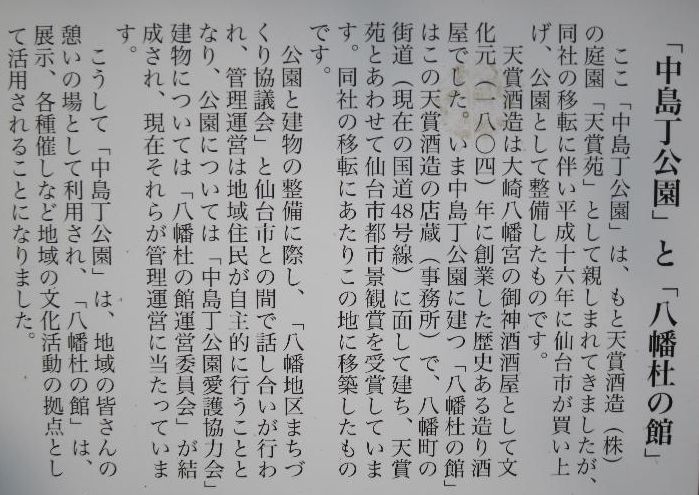 「中島丁公園」と「八幡杜の館」
ここ「中島丁公園」は、もと天賞酒造（株）
の庭園「天賞苑」として親しまれてきましたが、
同社の移転に伴い平成十六年に仙台市が買い上
げ、公園として整備したものです。
天賞酒造は大崎八幡宮の御神酒酒屋として文
化元（一八〇四）年に創業した歴史ある造り酒
屋でした。いま中島丁公園に建つ「八幡杜の館」
はこの天賞酒造の店蔵（事務所）で、八幡町の
街道（現在の国道48号線）に面して建ち、天賞
苑とあわせて仙台市都市景観賞を受賞していま
す。同社の移転にあたりこの地に移築したもの
です。
公園と建物の整備に際し、「八幡地区まちづ
くり協議会」と仙台市との間で話し合いが行わ
れ、管理運営は地域住民が自主的に行うことと
なり、公園については「中島丁公園愛護協力会」
建物については「八幡杜の館運営委員会」が結
成され、現在それらが管理運営に当たっていま
す。
こうして「中島丁公園」は、地域の皆さんの
憩いの場として利用され、「八幡杜の館」は、
展示、各種催しなど地域の文化活動の拠点とし
て活用されることになりました。